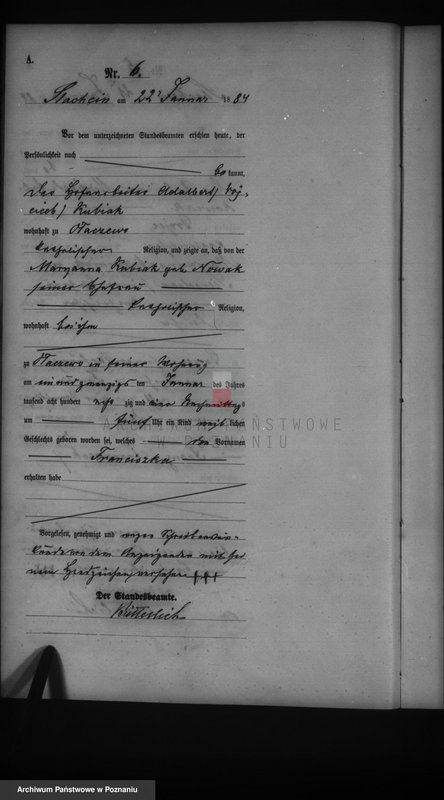 A.
Nr. 6.
am 22 Januar 1884
Vor dem unterzeichneten Standesbeamten erschien heute, der
Persönlichkeit nach
be kannt,
der Adalbert (Woj-
ciech) Kubiak
wohnhaft zu Naczewo
katholischer Religion, und zeigte an, daß von der
Maryanna Kubiak geb. Nowak
seiner Ehefrau
katholischer Religion,
wohnhaft bei ihm
zu Naczewo in seiner Wohnung
am ein und zwanzigs ten Januar des Jahres
tausend acht hundert acht zig und vier Nachmittags
um fünf Uhr ein Kind weib lichen
Geschlechts geboren worden sei, welches den Vornamen
Franciszka
erhalten habe
Vorgelesen, genehmigt und wegen Schreibens un-
kunde von dem Anzeigenden mit sei
nem Handzeichen versehen +++
Der Standesbeamte.
ARCHIWUM PAŃSTWOWE
W POZNANIU
Archiwum Państwowe w Poznaniu